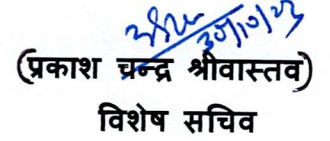 30/10/23
(प्रकाश चन्द्र श्रीवास्तव)
विशेष सचिव